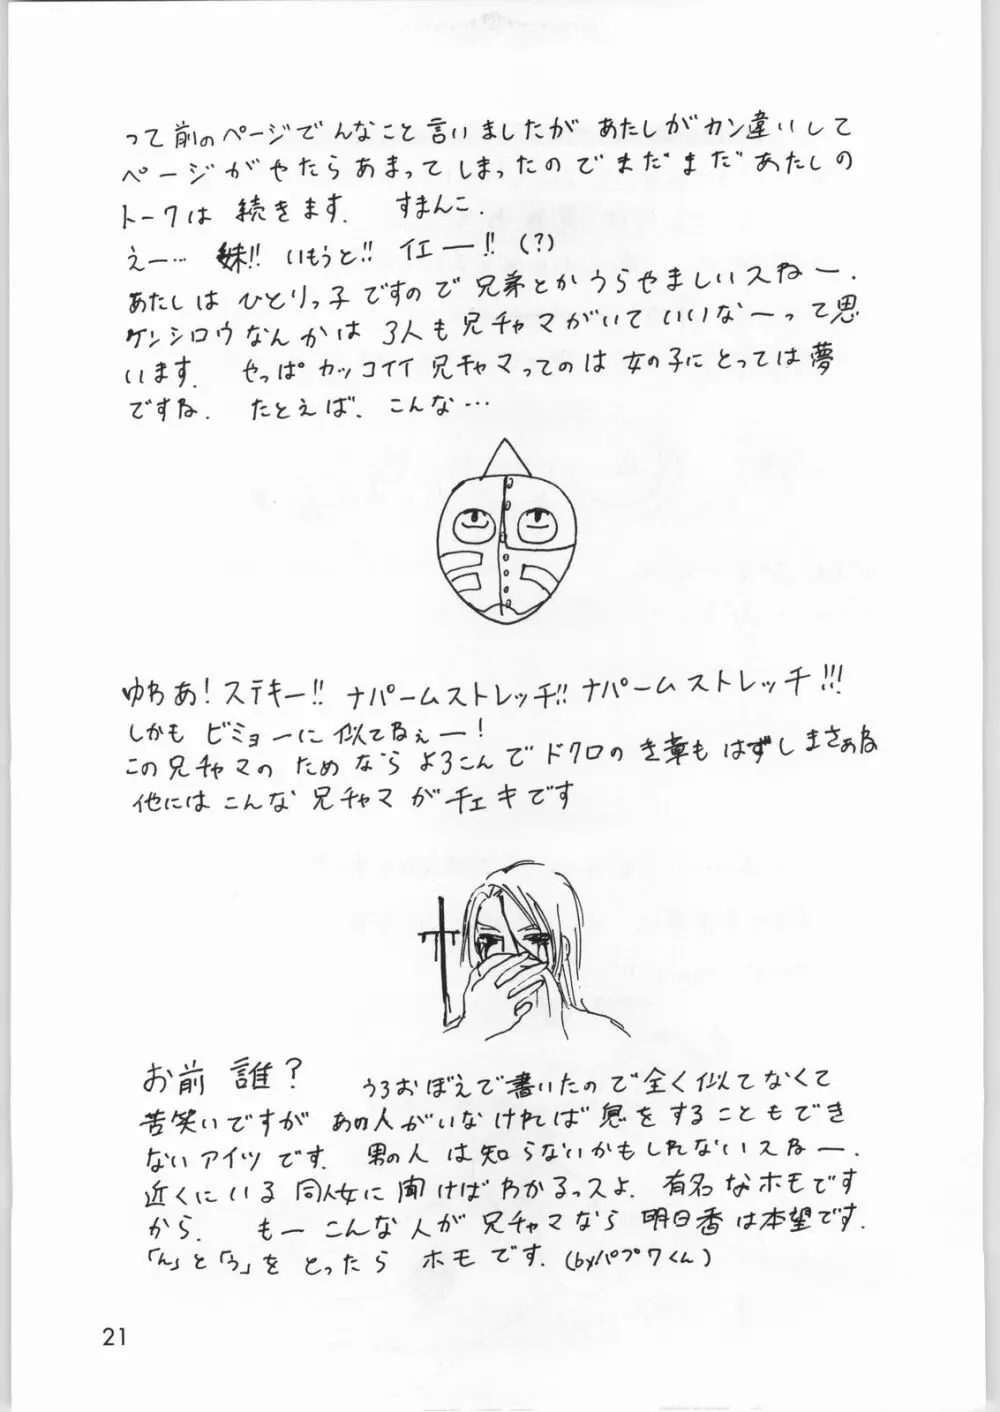 って前のページでんなこと言いましたが あたしがカン違いして
ページがやたらあまってしまったのでまだまだあたしの
トークは 続きます. すまんこ.
えー… 妹!! いもうと!! イエー!! (?)
あたしは ひとりっ子ですので兄弟とかうらやましいスねー.
ケンシロウなんかは 3人も兄チャマがいていいなーって思
います. やっぱカッコイイ兄チャマってのは女の子にとっては夢
ですね. たとえば、こんな…
ゆあ! ステキー!! ナパームストレッチ!! ナパームストレッチ!!!
しかも ビミョーに似てねぇー!
この兄チャマのためならよろこんでドクロの もはずしまさぁね
他にはこんな兄チャマがチェキです
お前 誰?
うろおぼえで書いたので全く似てなくて
苦笑いですが あの人がいなければ息をすることもでき
ないアイツです. 男の人は知らないかもしれないスねー.
近くにいる同人女に聞けばわかるっスよ. 有名なホモです
から. もーこんな人が兄チャマなら明日香は本望です.
「ん」と「う」をとったらホモです. (byパプワくん)
21